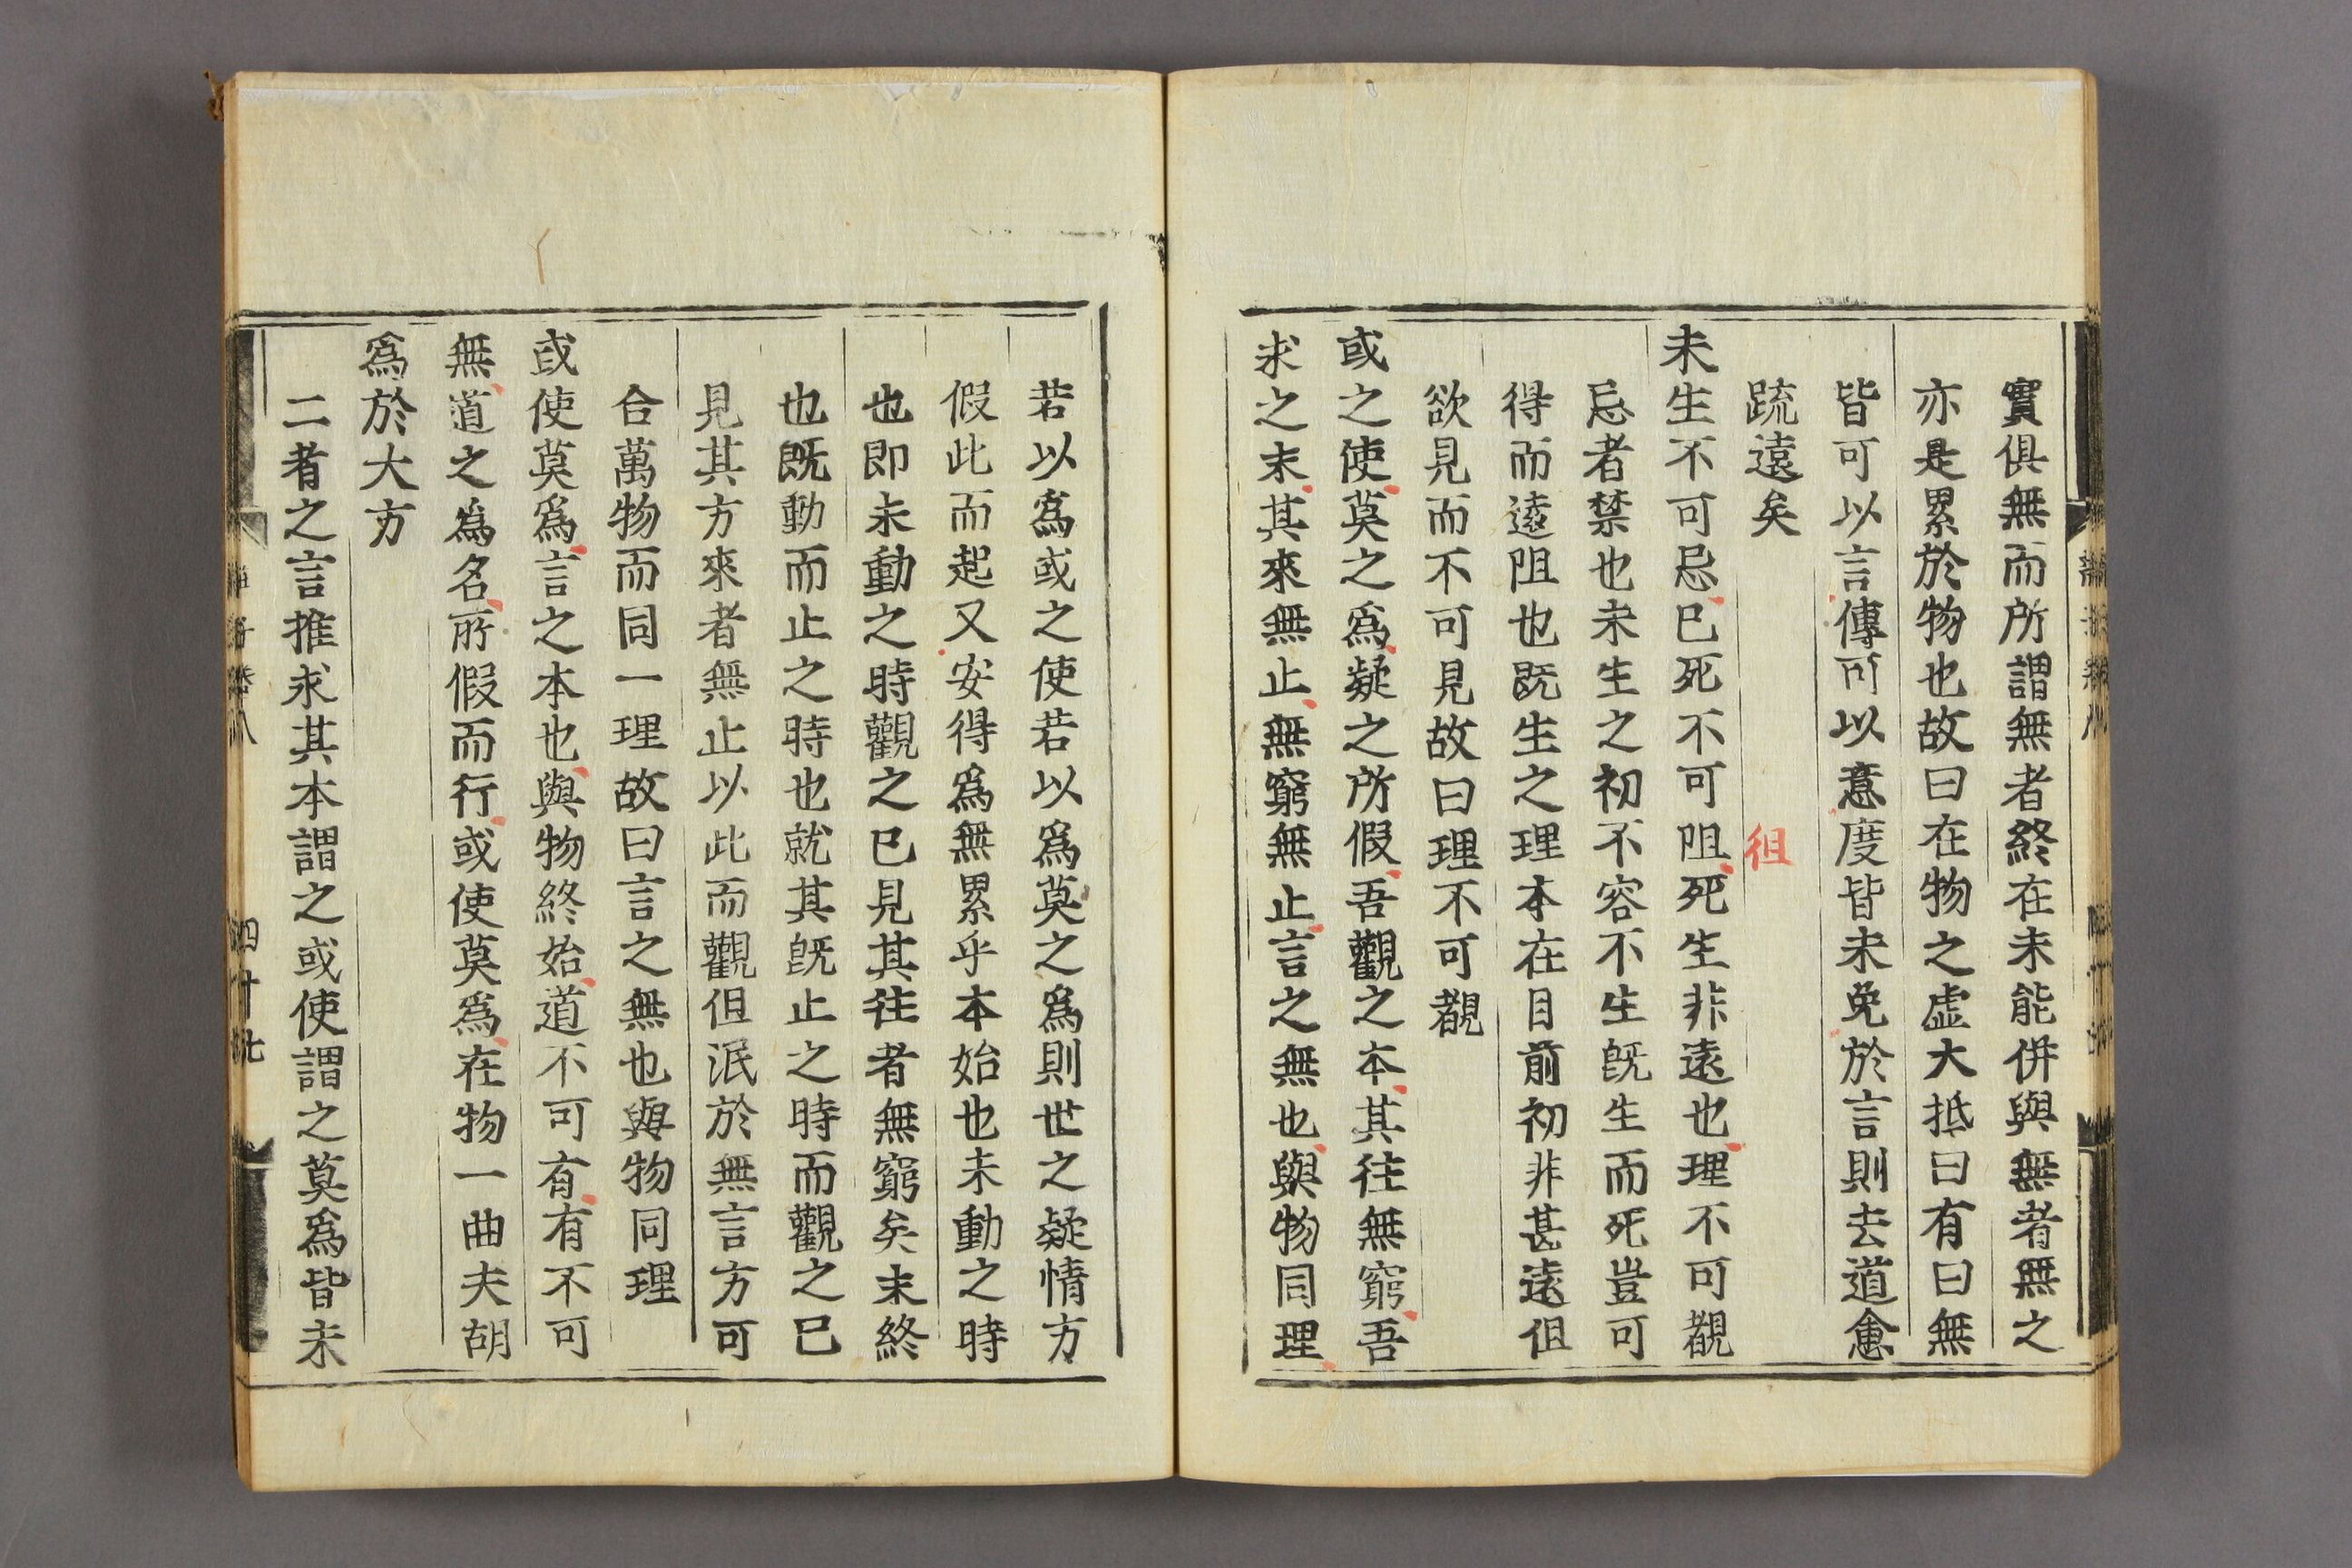 實俱無而所謂無者終在未能併與無者無之
亦是累於物也故曰在物之虛大抵曰有曰無
皆可以言傳可以意度皆未免於言則去道愈
䟽遠矣
徂
未生不可忌已死不可阻死生非遠也理不可覩
忌者禁也未生之初不容不生旣生而死豈可
得而遠阻也旣生之理本在目前初非甚遠但
欲見而不可見故曰理不可覩
或之使莫之爲疑之所假吾觀之本其往無窮吾
求之末其來無止無窮無止言之無也與物同理
若以爲或之使若以爲莫之爲則世之疑情方
假此而起又安得爲無累乎本始也未動之時
也即未動之時觀之已見其往者無窮矣末終
也旣動而止之時也就其旣止之時而觀之已
見其方來者無止以此而觀但泯於無言方可
合萬物而同一理故曰言之無也與物同理
或使莫爲言之本也與物終始道不可有有不可
無道之爲名所假而行或使莫爲在物一曲夫胡
爲於大方
二者之言推求其本謂之或使謂之莫爲皆未